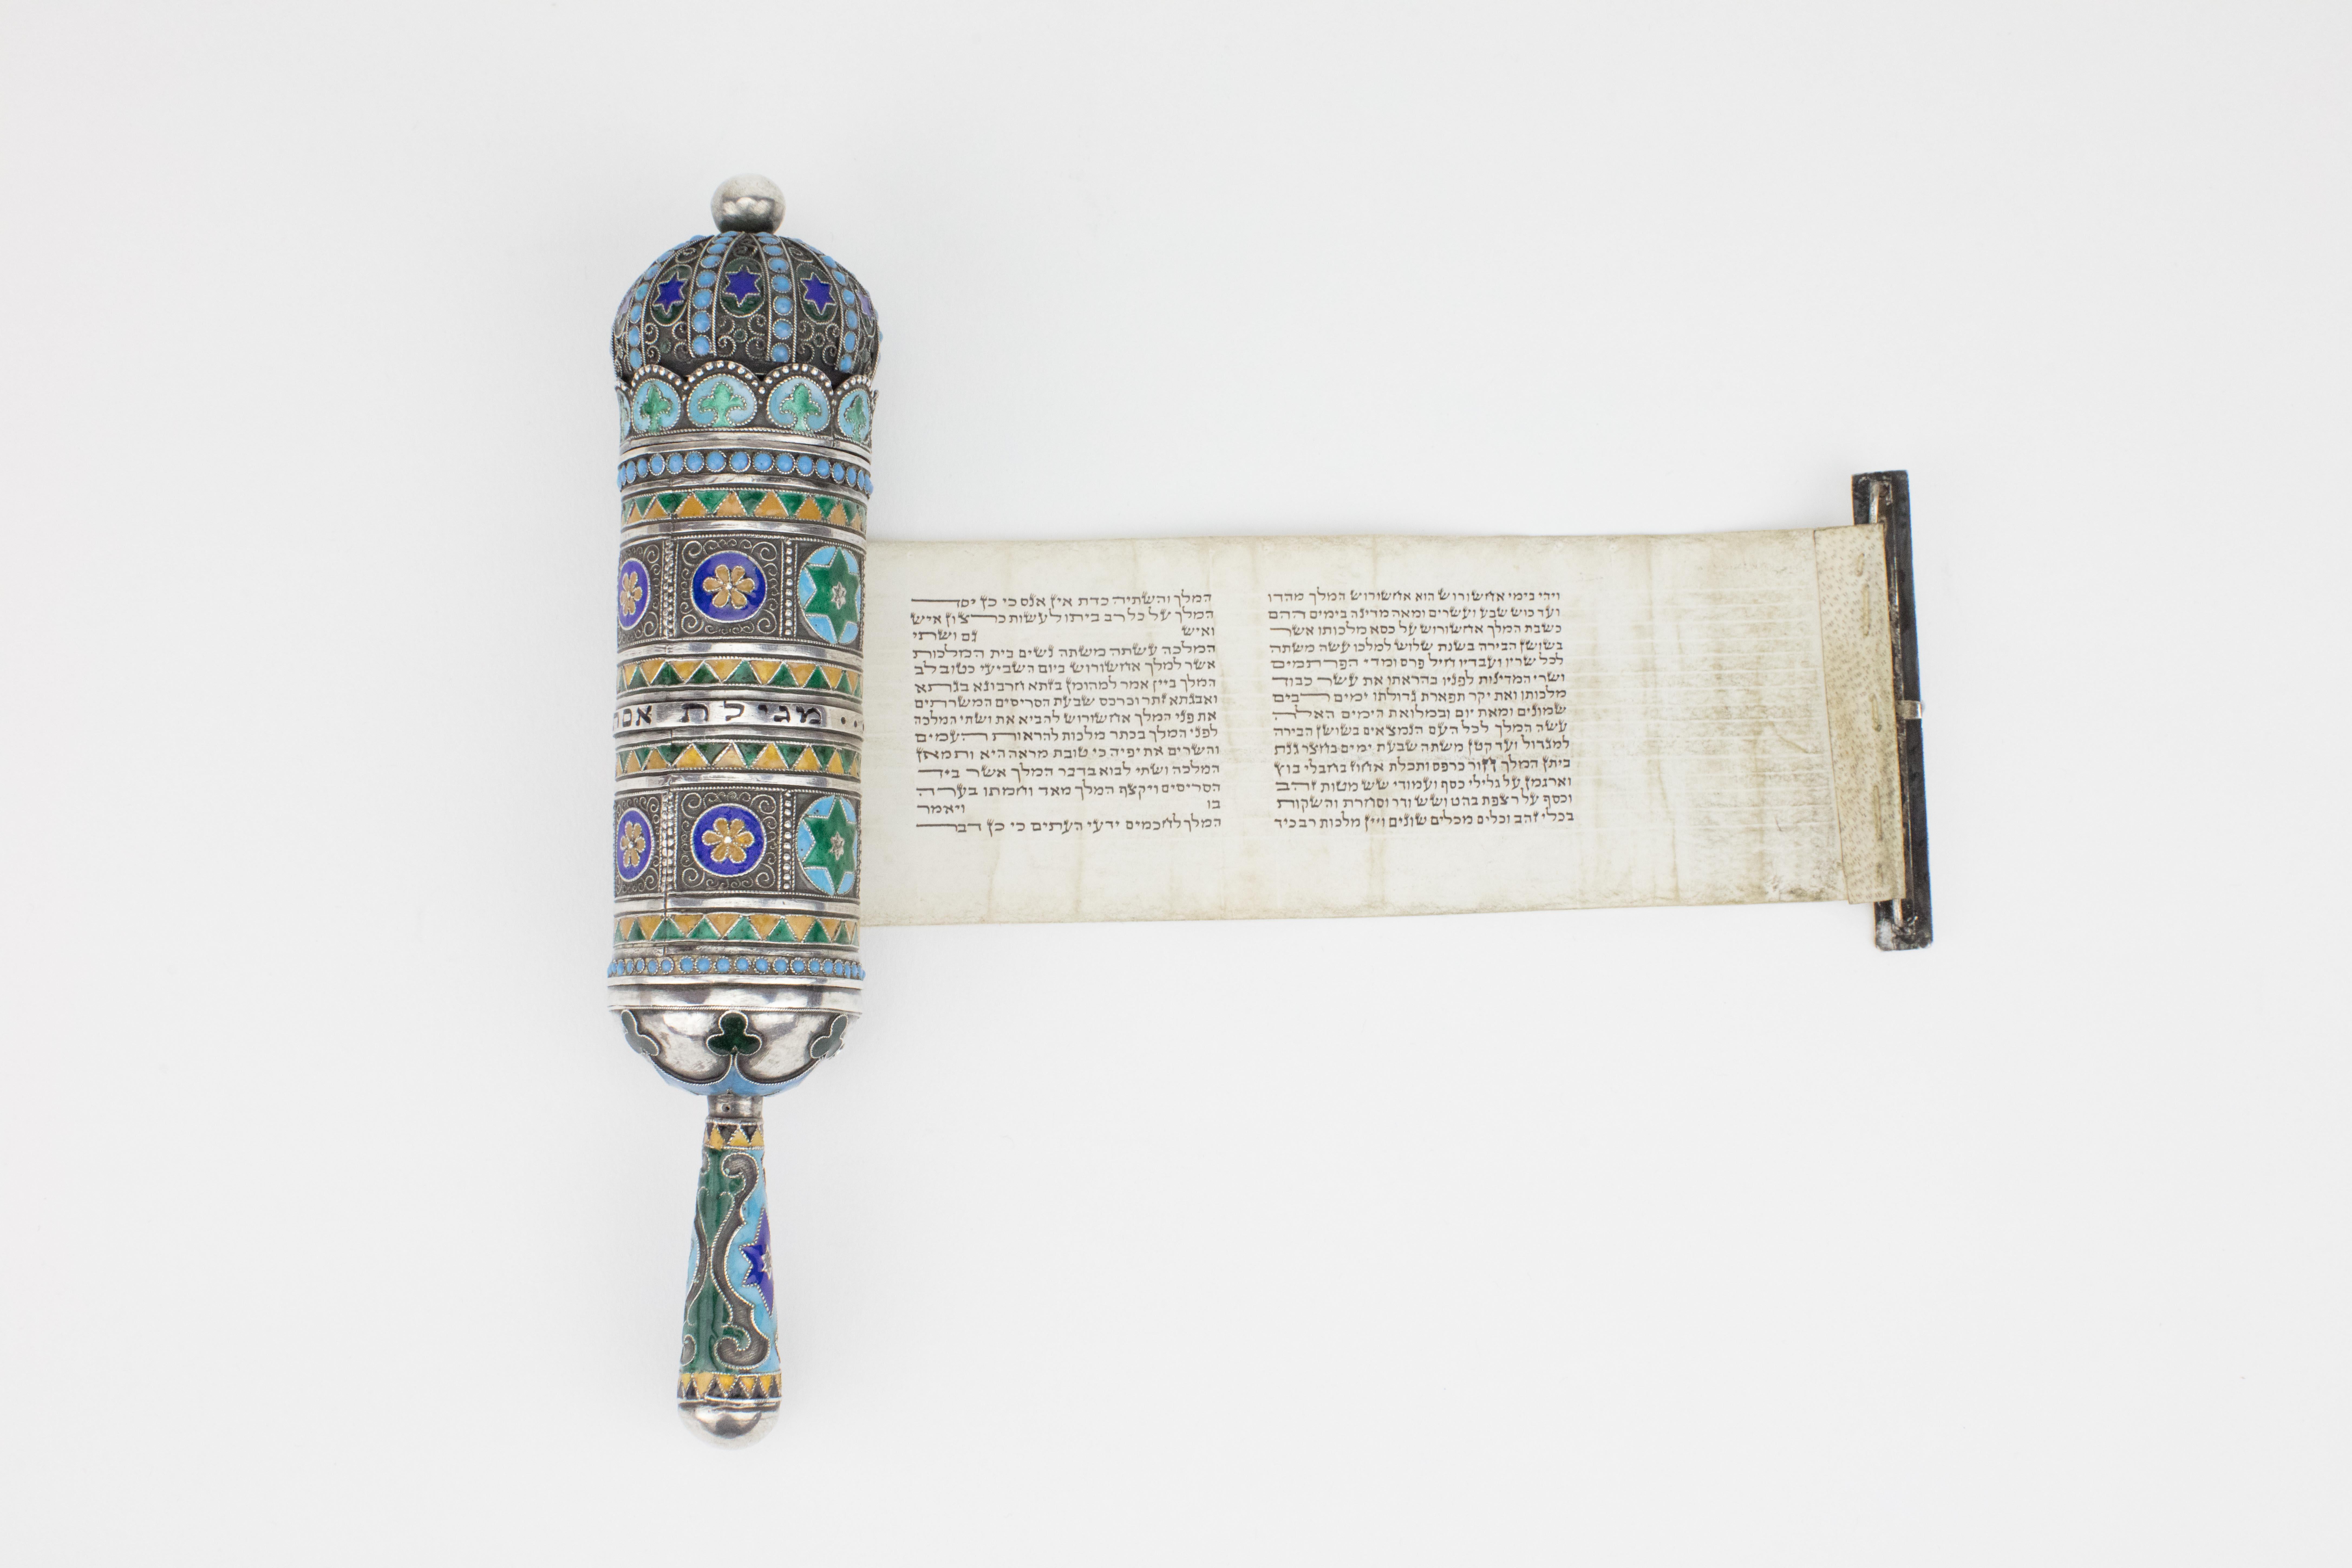 מגילת אסת
ויהי בימי אחשורוש הוא אחשורוש המלך מהדו
ועד כוש שבע ועשרים ומאה מדינה בימים ההם
כשבת המלך אחשורוש על כסא מלכותו אשר
בשושן הבירה בשנת שלוש למלכו עשה משתה
לכל שריו ועבדיו חיל פרס ומדי הפרתמים
ושרי המדינות לפניו בהראתו את עשר כבוד
מלכותו ואת יקר תפארת גדולתו ימים רבים
שמונים ומאת יום ובמלואת הימים האלה
עשה המלך לכל העם הנמצאים בשושן הבירה
למגדול ועד קטן משתה שבעת ימים בחצר גנת
ביתן המלך חור כרפס ותכלת אחוז בחבלי בוץ
וארגמן על גלילי כסף ועמודי שש מטות זהב
וכסף על רצפת בהט ושש ודר וסחרת והשקות
בכלי זהב וכלים מכלים שונים ויין מלכות רב כיד
המלך והשתיה כדת אין אנס כי כן יסד
המלך על כל רב ביתו לעשות כרצון איש
ואיש גם ושתי
המלכה עשתה משתה נשים בית המלכות
אשר למלך אחשורוש ביום השביעי כטוב לב
המלך ביין אמר למהומן בזתא חרבונא בגתא
ואבגתא זתר וכרכס שבעת הסריסים המשרתים
את פני המלך אחשורוש להביא את ושתי המלכה
לפני המלך בכתר מלכות להראות העמים
והשרים את יפיה כי טובת מראה היא ותמאן
המלכה ושתי לבוא בדבר המלך אשר ביד
הסריסים ויקצף המלך מאד וחמתו בערה
בו ויאמר
המלך לחכמים ידעי העתים כי כן דבר